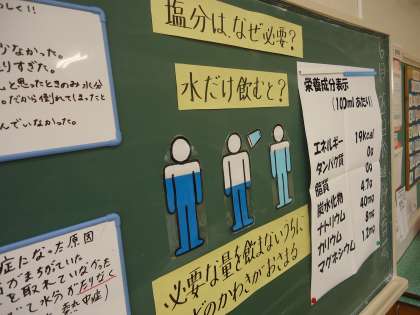 しく!!
少なかった。
りすぎた。
っと思ったときのみ水分
だから倒れてしまったと
んでいなかった。
塩分は、なぜ必要?
水だけ飲むと?
必要な量を飲まないうちに
どのかわきがおさまる
症になった原因
がまちがっていた
を取れていなかった
て水分が足りなく
熱中症
栄養成分表示
(100mlあたり)
エネルギー 19kcal
タンパク質 0g
脂質 0g
炭水化物 4.7g
ナトリウム 40mg
カリウム 8mg
マグネシウム 1.2mg